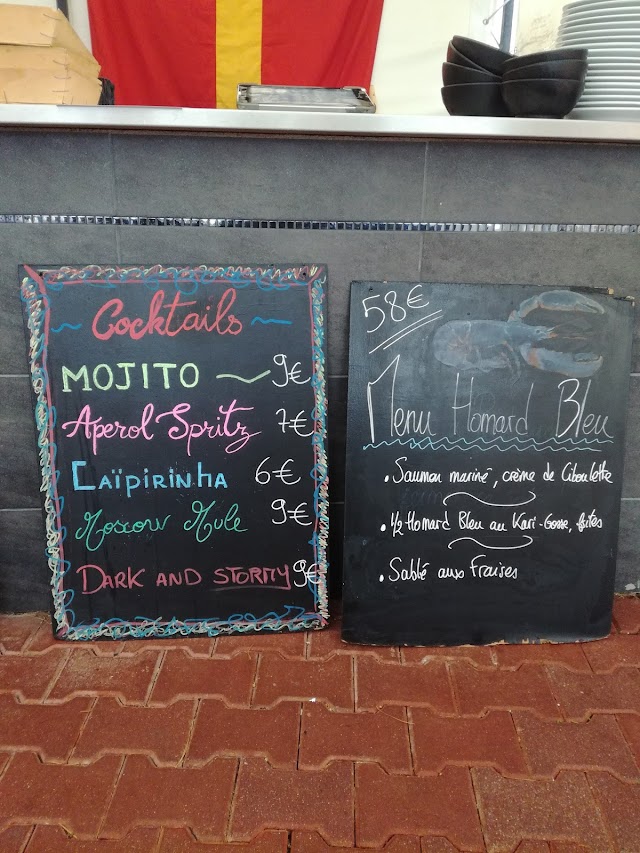 Cocktails
MOJITO 9€
Aperol Spritz 7€
CAÏPIRINHA 6€
Moscow Mule 9€
DARK AND STORMY 9€
58€
Menu Homard Bleu
• Saumon mariné, crème de Ciboulette
• 1/2 Homard Bleu au Kari-Gosse, frites
• Sablé aux Fraises